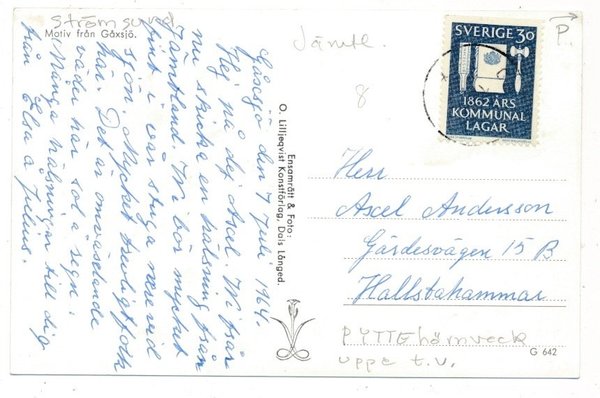 Strömsund
Motiv från Gåxsjö.
Jämtl.
8
P.
SVERIGE 30
1862 ÅRS
KOMMUNAL
LAGAR
Gåxsjö den 7 Juli 1964.
Hej på dej Axel. Vi får
nu skicka en hälsning från
Jämtland. Vi bor mycket
fint i vår stuga nere vid
sjön. Mycket trevligt folk
här. Det är omväxlande
väder här sol o regn.
Många hälsningar till dig
från Elsa o Julius.
Ensamrätt & Foto:
O. Lilljeqvist Konstförlag, Dals Långed.
Herr
Axel Andersson
Gärdesvägen 15 B
Hallstahammar
PYTTEhörnveck
uppe t.v.
G 642